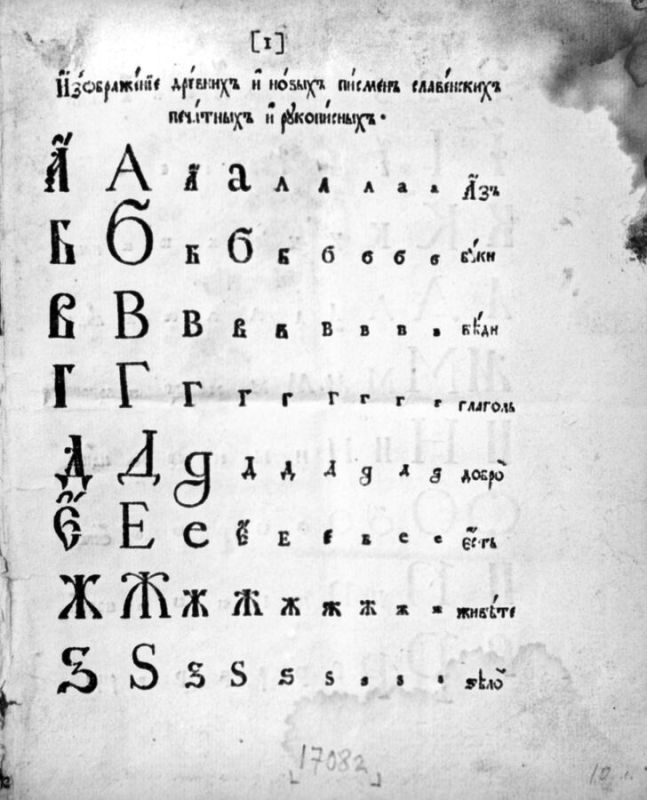 [1]
И҆зѡбраже́нїе дре́внихъ и҆ но́выхъ пи́сменъ славе́нскихъ
печа́тныхъ и҆ рꙋкопи́сныхъ.
А҆́ А а҆́ а а а а а а А҆́зъ
Б Б б б б б б б б бꙋ́ки
В В в в в в в в в вѣ́ди
Г Г г г г г г г г глаголь
Д Д д д д д д д д добро̀
Є҆́ Е е є҆́ е є в е е є҆́сть
Ж Ж ж ж ж ж ж ж ж живѣ́те
Ѕ Ѕ ѕ ѕ ѕ ѕ ѕ ѕ ѕ ѕѣло̀
17082
10